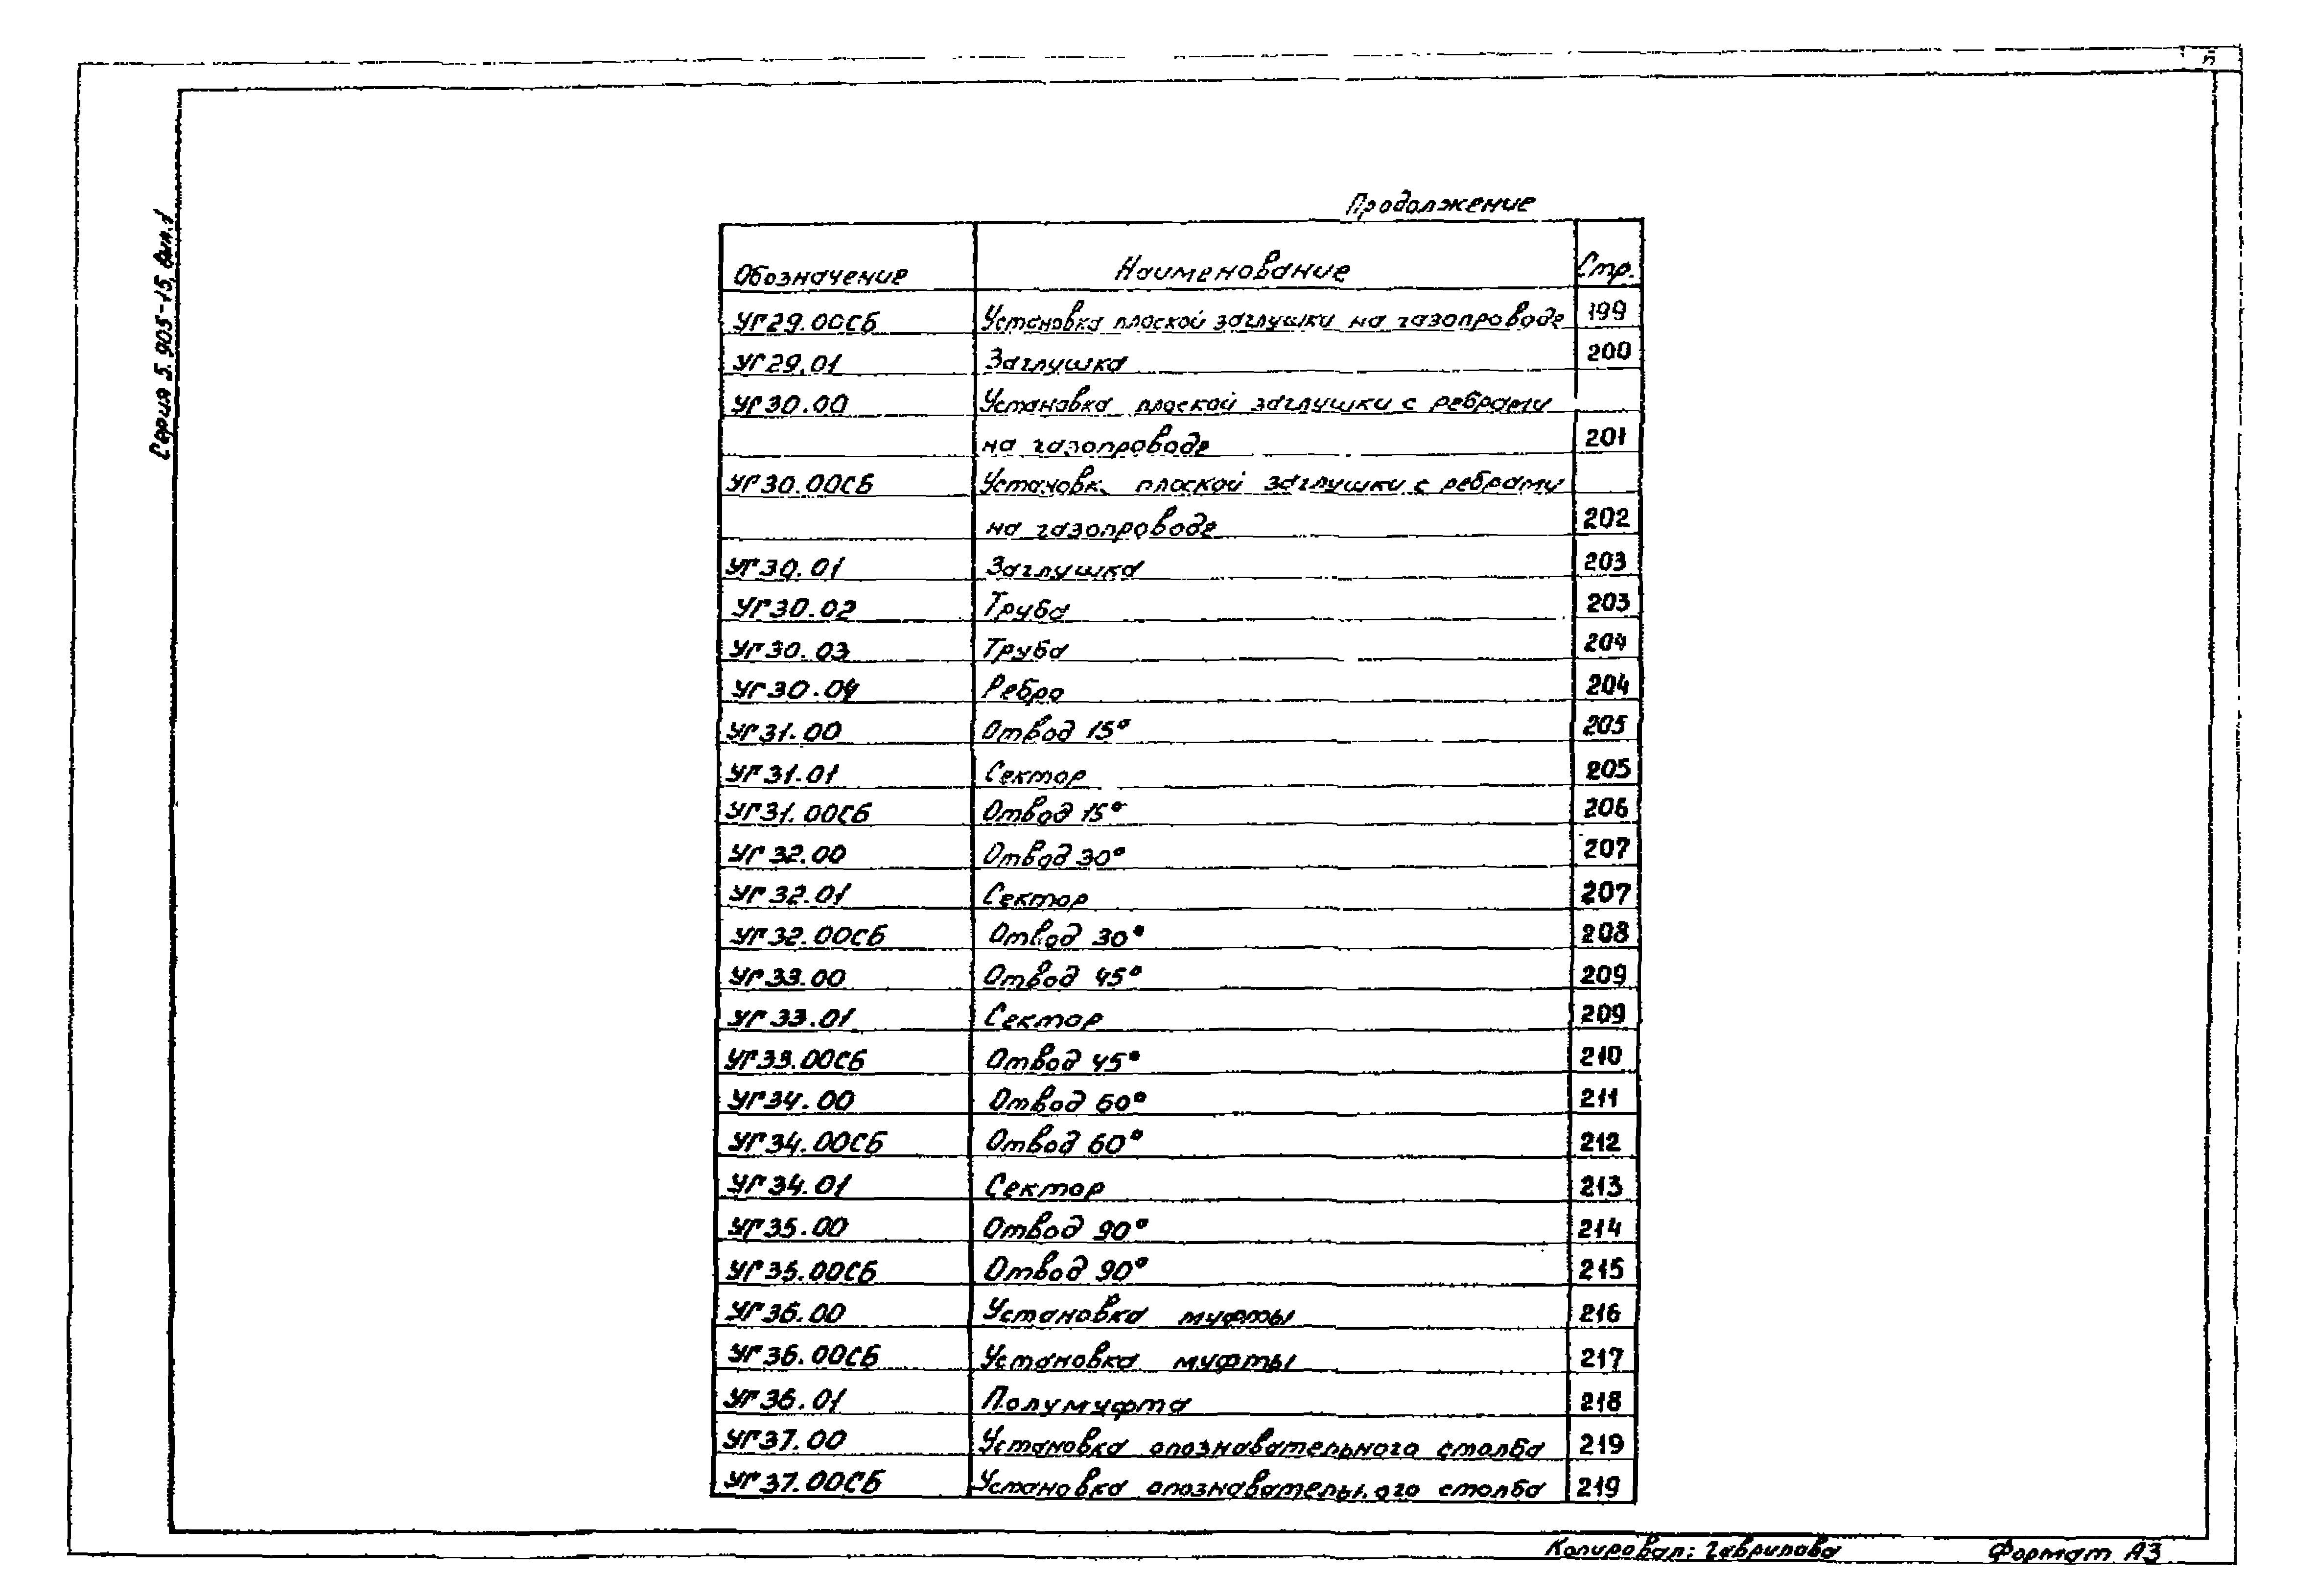 5
Серия 5.905-15, вып.1
Продолжение
Обозначение Наименование Стр.
УГ29.00СБ Установка плоской заглушки на газопроводе 199
УГ29.01 Заглушка 200
УГ30.00 Установка плоской заглушки с ребрами
на газопроводе 201
УГ30.00СБ Установк. плоской заглушки с ребрами
на газопроводе 202
УГ30.01 Заглушка 203
УГ30.02 Труба 203
УГ30.03 Труба 204
УГ30.04 Ребро 204
УГ31.00 Отвод 15° 205
УГ31.01 Сектор 205
УГ31.00СБ Отвод 15° 206
УГ32.00 Отвод 30° 207
УГ32.01 Сектор 207
УГ32.00СБ Отвод 30° 208
УГ33.00 Отвод 45° 209
УГ33.01 Сектор 209
УГ33.00СБ Отвод 45° 210
УГ34.00 Отвод 60° 211
УГ34.00СБ Отвод 60° 212
УГ34.01 Сектор 213
УГ35.00 Отвод 90° 214
УГ35.00СБ Отвод 90° 215
УГ36.00 Установка муфты 216
УГ36.00СБ Установка муфты 217
УГ36.01 Полумуфта 218
УГ37.00 Установка опознавательного столба 219
УГ37.00СБ Установка опознавательного столба 219
Копировал: Гаврилова Формат А3